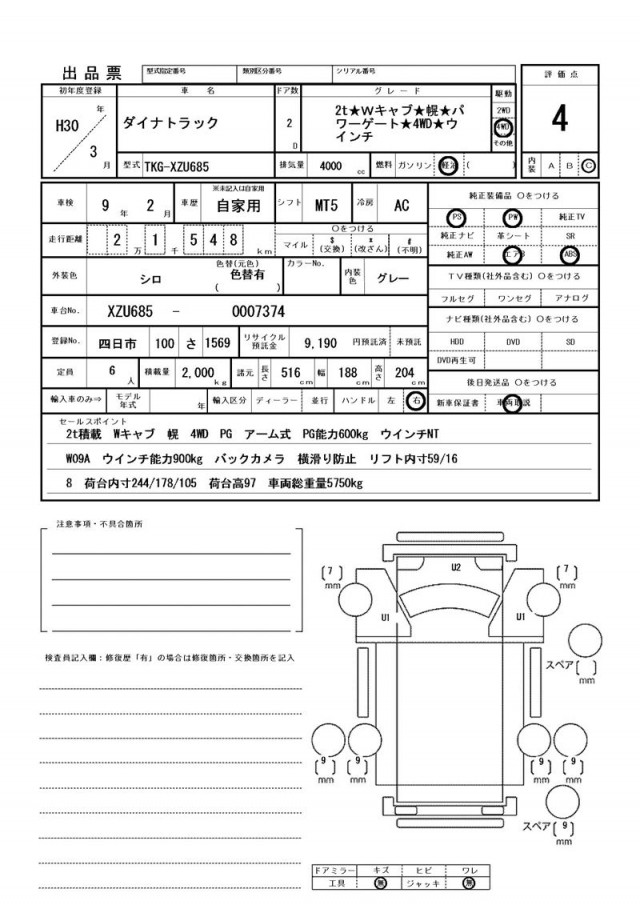 出品票 型式指定番号 類別区分番号 シリアル番号
初年度登録 車名 ドア数 グレード 駆動 評価点
H30 年 3 月 ダイナトラック 2 D 2t★Wキャブ★幌★パ 2WD 4
ワーゲート★4WD★ウ 4WD
インチ その他
型式 TKG-XZU685 排気量 4000 cc 燃料 ガソリン 軽油 ( ) 内装 A B C
車検 9 年 2 月 車歴 ※未記入は自家用 自家用 シフト MT5 冷房 AC 純正装備品 〇をつける
PS PW 純正TV
走行距離 2 万 1 千 5 4 8 km 〇をつける マイル $ (交換) * (改ざん) # (不明) 純正ナビ 革シート SR
純正AW エアB ABS
外装色 シロ 色替(元色) 色替有 ( ) カラーNo. 内装色 グレー TV種類(社外品含む) 〇をつける
フルセグ ワンセグ アナログ
車台No. XZU685 - 0007374 ナビ種類(社外品含む) 〇をつける
登録No. 四日市 100 さ 1569 リサイクル預託金 9,190 円預託済 未預託 HDD DVD SD
DVD再生可
定員 6 人 積載量 2,000 kg 諸元 長さ 516 cm 幅 188 cm 高さ 204 cm 後日発送品 〇をつける
輸入車のみ⇒ モデル年式 年 輸入区分 ディーラー 並行 ハンドル 左 右 新車保証書 車両取説
セールスポイント
2t積載 Wキャブ 幌 4WD PG アーム式 PG能力600kg ウインチNT
W09A ウインチ能力900kg バックカメラ 横滑り防止 リフト内寸59/16
8 荷台内寸244/178/105 荷台高97 車両総重量5750kg
注意事項・不具合箇所
U2
[7] mm [7] mm
U1 U1
検査員記入欄:修復歴「有」の場合は修復箇所・交換箇所を記入
スペア[ ] mm
[9] mm [9] mm [9] mm [9] mm
スペア[9] mm
ドアミラー キズ ヒビ ワレ
工具 無 ジャッキ 無